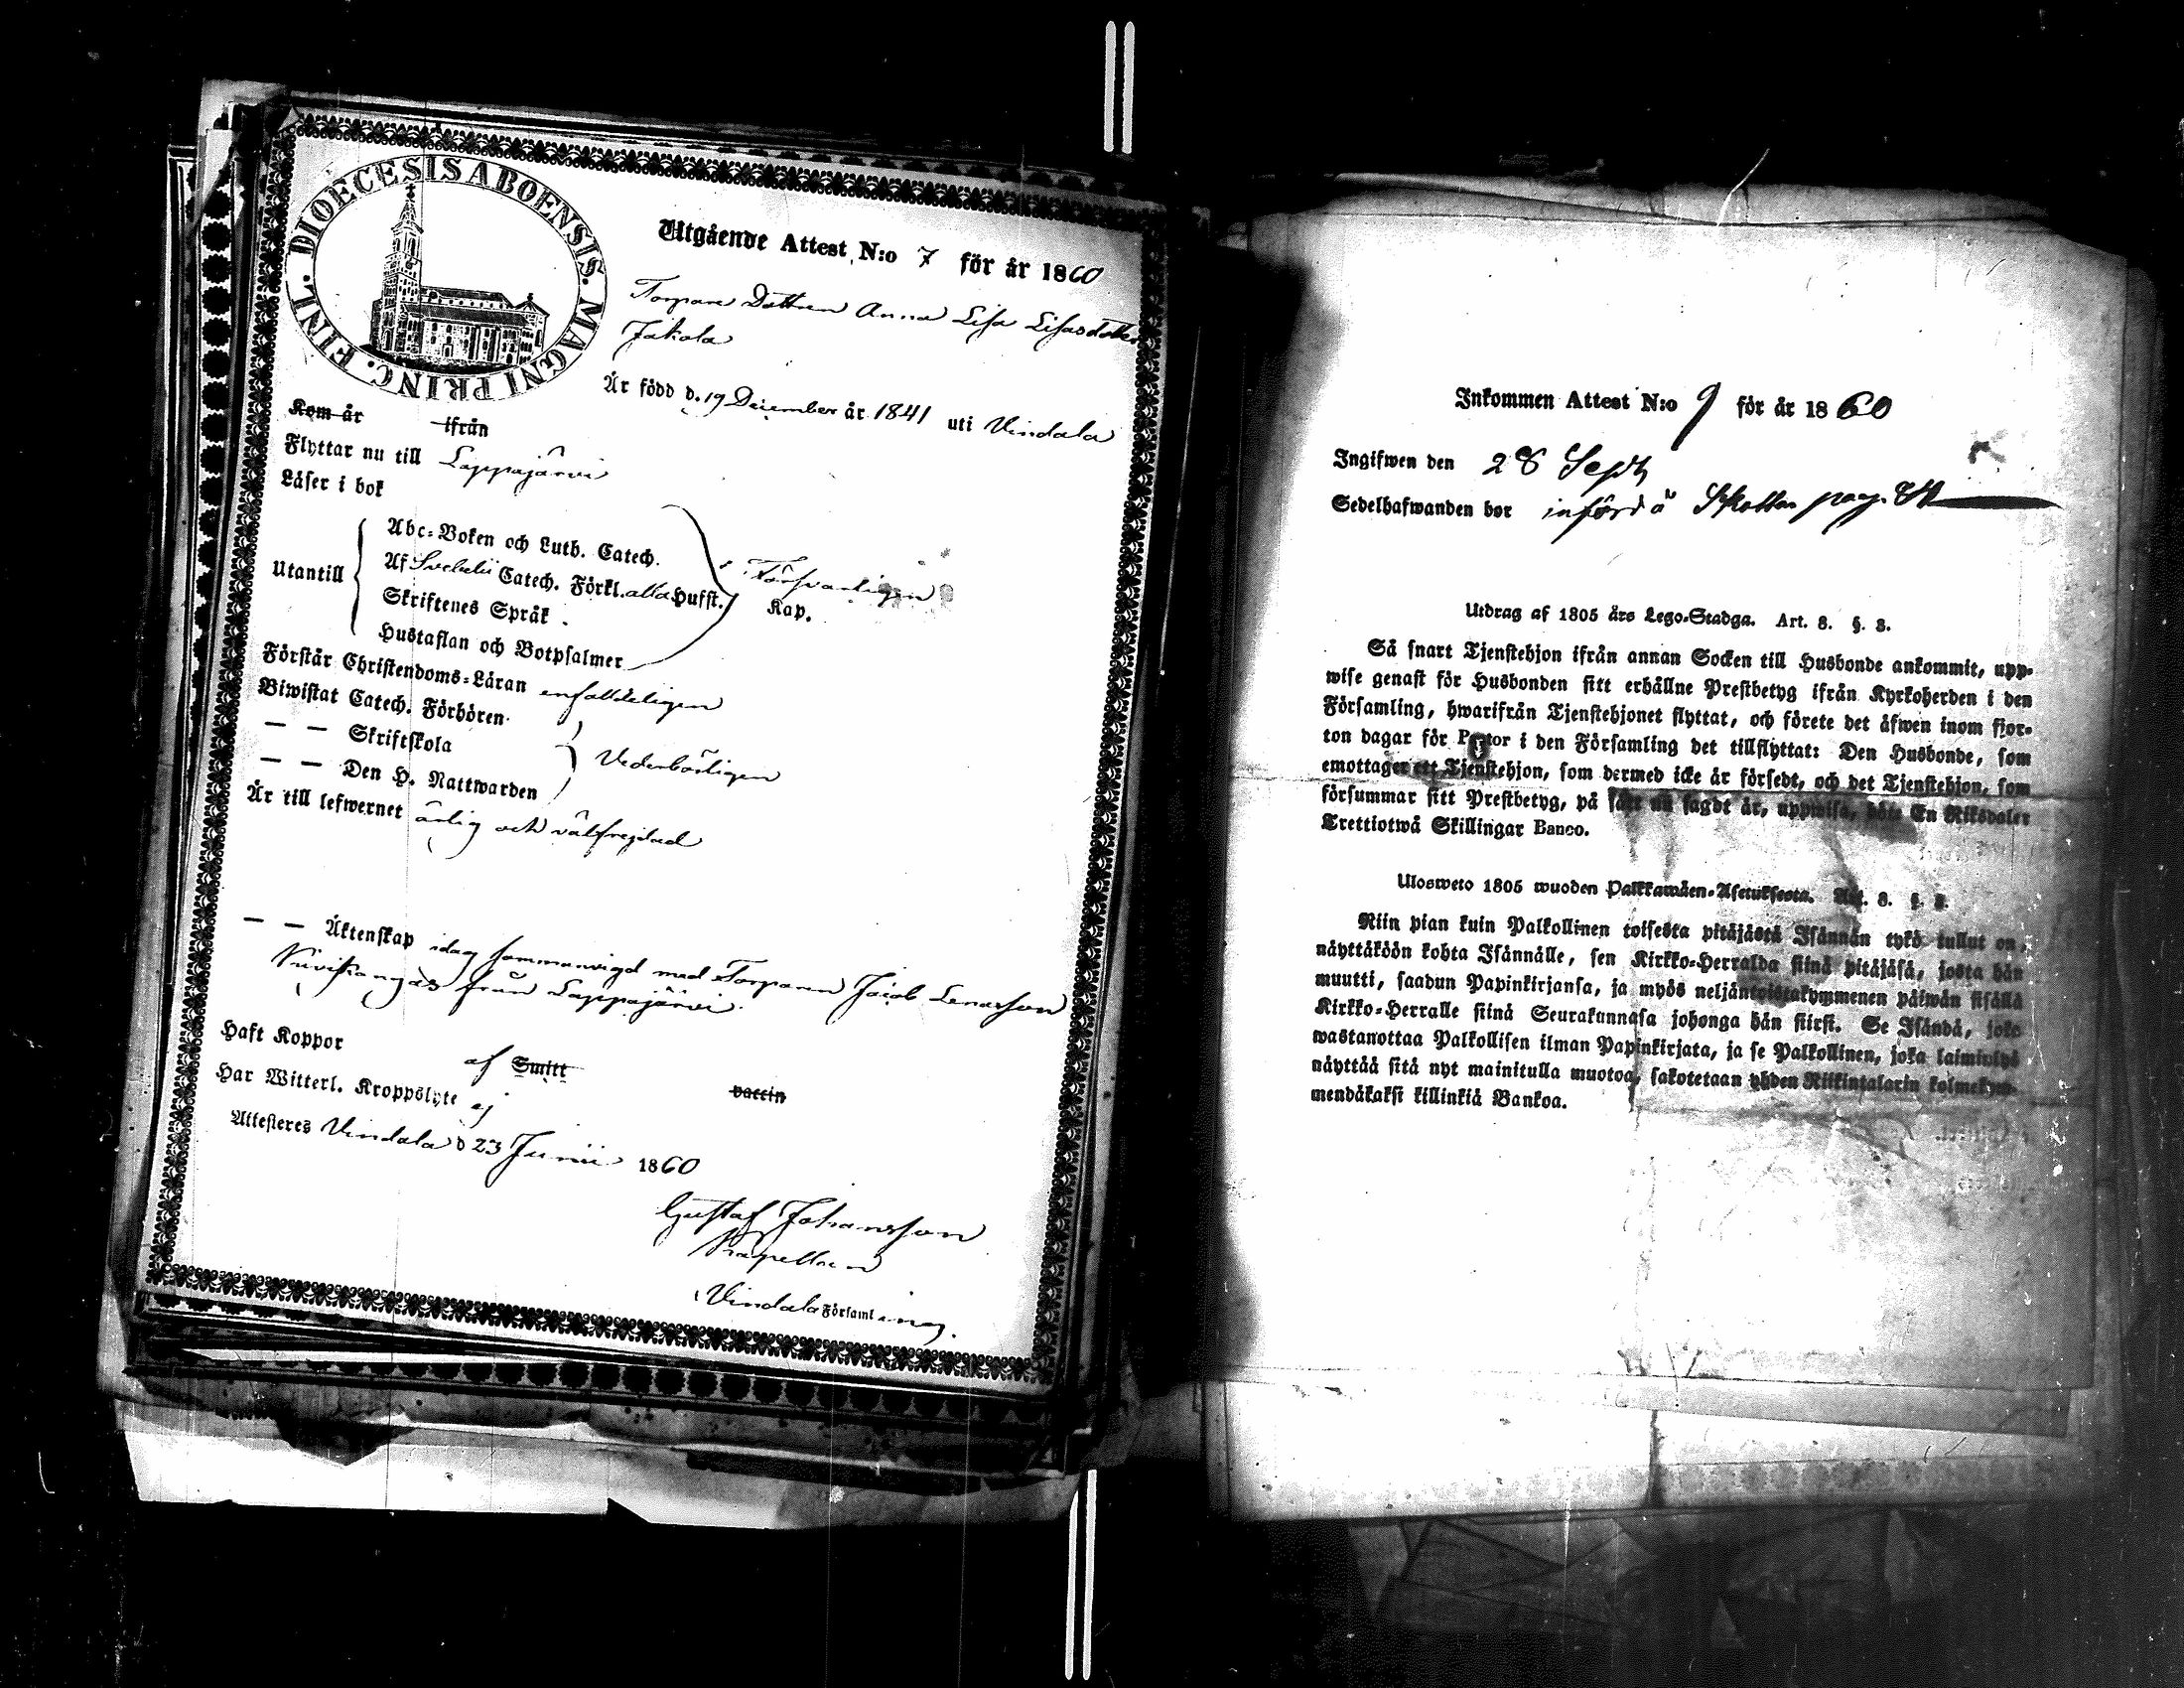 DIOECESIS ABOENSIS. MAGNI PRINC. FINL.
Utgående Attest N:o 7 för år 1860
Torpare Dottren Anna Lisa Lisasdotter
Jakola
Är född d. 19 December år 1841 uti Vindala
Kom år ifrån
Flyttar nu till Lappajärvi
Läser i bok
Abc-Boken och Luth. Catech.
Utantill Af Svebelii Catech. Förkl. alla Hufst. Kap. Försvarligen
Skriftenes Språk
Hustaflan och Botpsalmer
Förstår Christendoms-Läran enfaldeligen
Biwistat Catech. Förhören
— — Skriftskola Vederbörligen
— — Den H. Nattwarden
Är till lefwernet ärlig och välfrejdad
— — Äktenskap idag sammanvigd med Torparen Jacob
från Lappajärvi.
Haft Koppor af Smitt vaccin
Har Witterl. Kroppslyte ej
Attesteres Vindala d 23 Junii 1860
Gustaf Johansson
Kapellan
i Vindala Församling.
Inkommen Attest N:o 9 för år 1860
Ingifwen den 28 Sept
Sedelhafwanden bor införd å pag.
Utdrag af 1805 års Lego-Stadga. Art. 8. §. 3.
Så snart Tjenstehjon ifrån annan Socken till Husbonde ankommit, upp-
wise genast för Husbonden sitt erhållne Prestbetyg ifrån Kyrkoherden i den
Församling, hwarifrån Tjenstehjonet flyttat, och förete det äfwen inom fjor-
ton dagar för Pastor i den Församling det tillflyttat: Den Husbonde, som
emottager ett Tjenstehjon, som dermed icke är försedt, och det Tjenstehjon, som
försummar sitt Prestbetyg, på sätt nu sagdt är, uppwisa, böte En Riksdaler
Trettiotwå Skillingar Banco.
Ulosweto 1805 wuoden Palkkawäen-Asetuksesta. Art. 8. §. 3.
Niin pian kuin Palkollinen toisesta pitäjästä Isännän tykö tullut on,
näyttäköön kohta Isännälle, sen Kirkko-Herralda siinä pitäjäsä, josta hän
muutti, saadun Papinkirjansa, ja myös neljäntoistakymmenen päiwän sisällä
Kirkko-Herralle siinä Seurakunnasa johonga hän siirsi. Se Isändä, joka
wastanottaa Palkollisen ilman Papinkirjata, ja se Palkollinen, joka laiminlyö
näyttää sitä nyt mainitulla muotoa, sakotetaan yhden Riikintalarin kolmekym-
mendäkaksi killinkiä Bankoa.